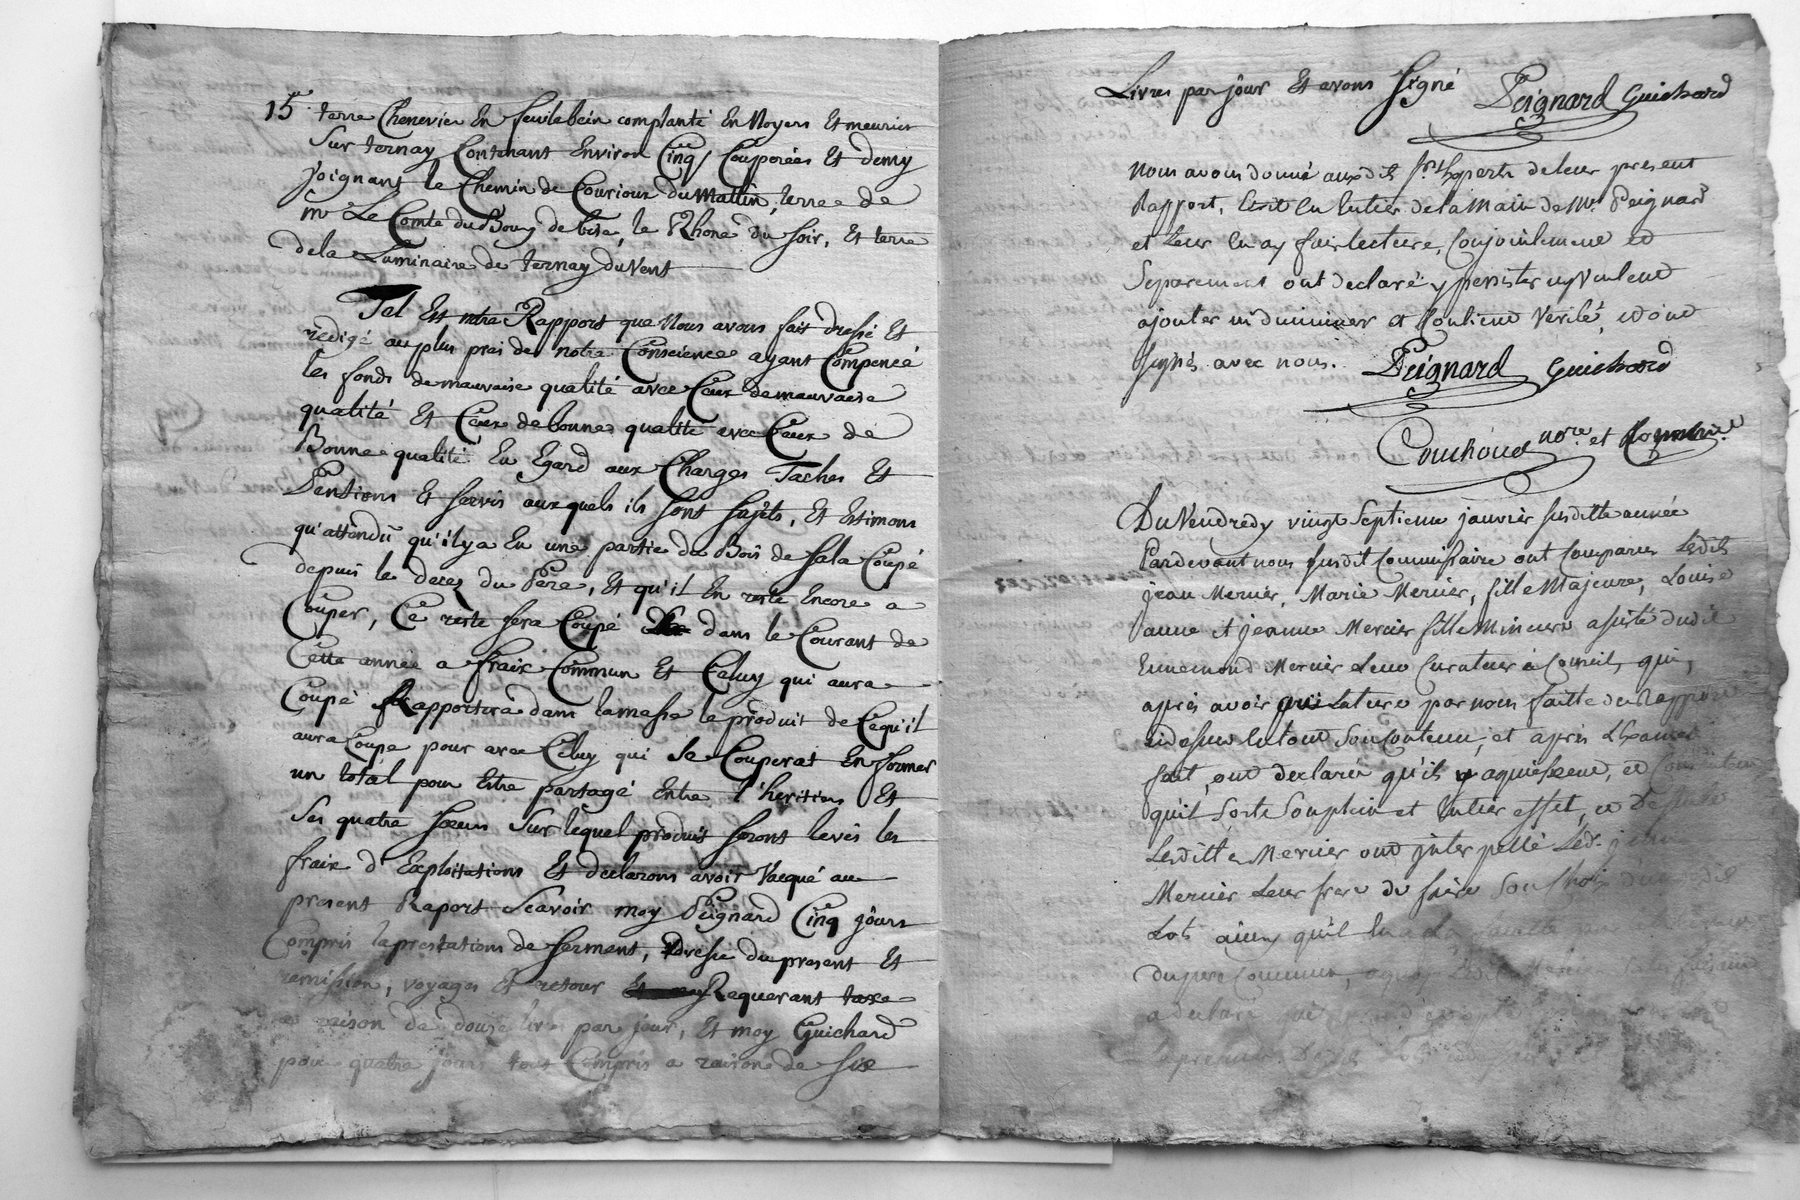 15 terre Chenevier En feuilebein complanté En Noyers Et meuriers
Sur ternay Contenant Environ Cinq Couporées Et demy
joignant le Chemin de Couriour du Mattin, terre de
mr Le Comte du Bourg de bise, le Rhone du soir, Et terre
de la Luminaire de ternay du Vent
Tel Est notre Rapport que Nous avons fait dressé Et
redigé au plus pres de notre Conscience ayant Compencé
les fonds de mauvaise qualité avec Ceux de mauvaise
qualité Et Ceux de bonne qualité avec Ceux de
Bonne qualité En Egard aux Charges Taches Et
Pentions Et servis auxquels ils sont sujets, Et Estimons
qu'attendû qu'il y a En une partie du Bois de sala Coupé
depuis le deces du Pere, Et qu'il En reste Encore a
Couper, Ce reste sera Coupé dans le Courant de
Cette année a fraix Commun Et Celuy qui aura
Coupé Rapportera dans la masse le produit de Ce qu'il
aura Coupe pour avec Celuy qui se Couperat En former
un total pour Estre partagé Entre l'heritiers Et
Ses quatre soeurs Sur lequel produit seront levés les
fraix d'Exploitations Et declarons avoir Vacqué au
present Raport Scavoir moy Peignard Cinq jôurs
Compris la prestations de serment, dresse du present Et
remission, voyages Et retour Requerant taxe
a raison de douze livres par jour, Et moy Guichard
pour quatre jours tous Compris a raison de six
Livres par jôur Et avons signé Peignard Guichard
Nous avons donné auxdits srs Experts de leur present
Rapport, Ecrit En Entier de la Main de Mr Peignard
et Leur En ay fait lecture, Conjointement et
Separement ont declaré y persister ny vouloir
ajouter ni diminuer et Contient Verité, et ont
signés avec nous. Peignard Guichard
Couchoud nore. et Commre.
Du Vendredy vingt Septieme janvier susditte année
Pardevant nous susdit Commissaire ont Comparus Lesdits
jean Mercier, Marie Mercier, fille Majeure, Louise
anne et jeanne Mercier fille Mineure assisté dudit
Ennemond Mercier Leur Curateur à Conseils, qui,
après avoir oui Lecture par nous faitte du Rapport
cidessus En tout son Contenu, et après L'examen
fait, ont declarés qu'ils y aquiessent, et
qu'il sorte son plein et Entier effet, et
Lesdittes Mercier ont jnterpellé Led. jean
Mercier Leur frere de faire son Choix
Lots ainsy qu'il En a
du pere Commun,
a declaré